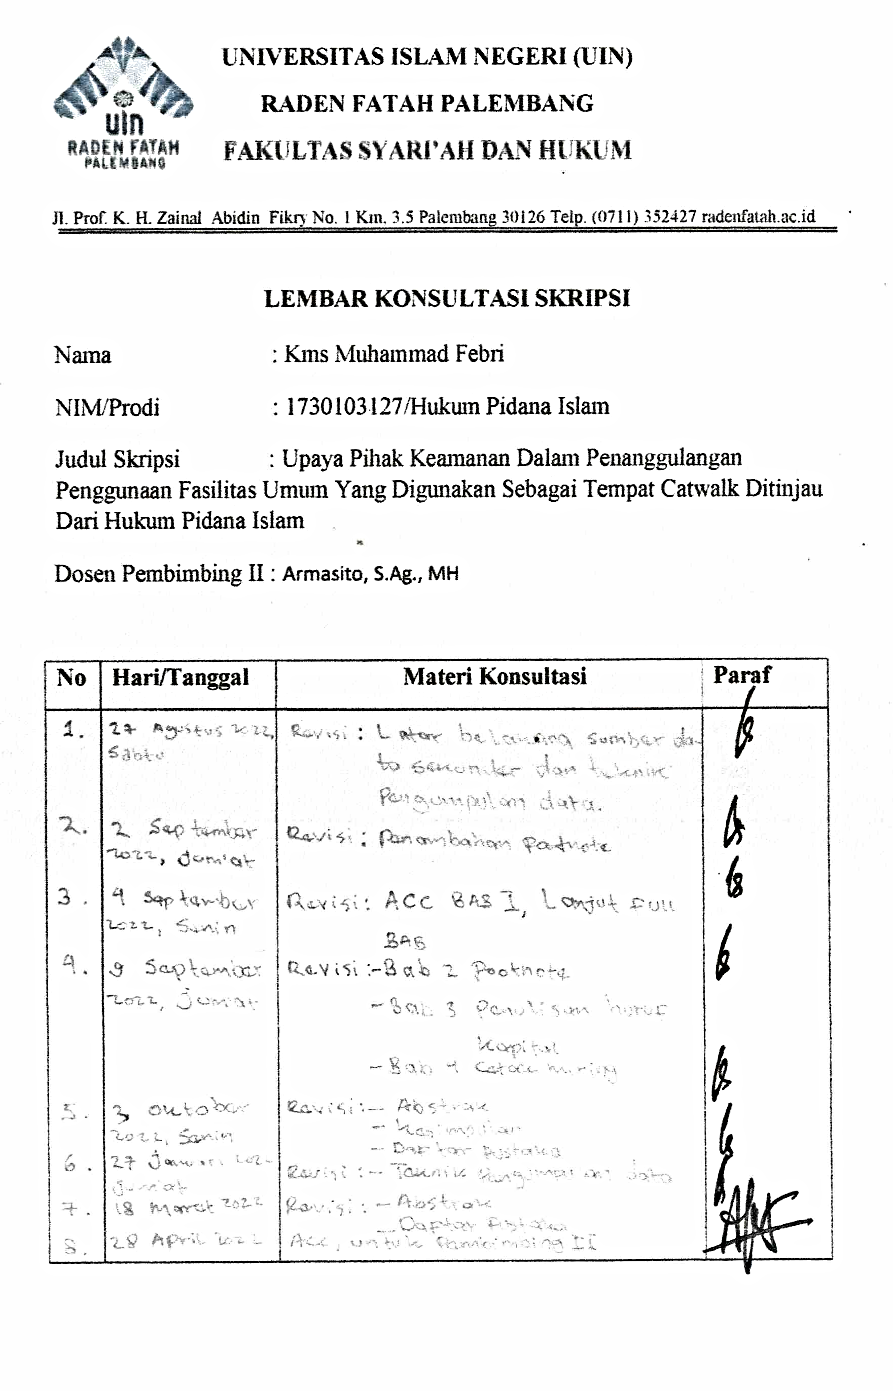 UNIVERSITAS ISLAM NEGERI (UIN)
RADEN FATAH PALEMBANG
FAKULTAS SYARI'AH DAN HUKUM
uin
RADEN FATAH
PALEMBANG
Jl. Prof. K. H. Zainal Abidin Fikry No. 1 Km. 3.5 Palembang 30126 Telp. (0711) 352427 radenfatah.ac.id
LEMBAR KONSULTASI SKRIPSI
Nama : Kms Muhammad Febri
NIM/Prodi : 1730103127/Hukum Pidana Islam
Judul Skripsi : Upaya Pihak Keamanan Dalam Penanggulangan
Penggunaan Fasilitas Umum Yang Digunakan Sebagai Tempat Catwalk Ditinjau
Dari Hukum Pidana Islam
Dosen Pembimbing II : Armasito, S.Ag., MH
No Hari/Tanggal Materi Konsultasi Paraf
1. 27 Agustus 2022, Revisi : Latar belakang sumber da-
Sabtu ta sekunder dan teknik
Pengumpulan data.
2. 2 September Revisi : Penambahan Footnote
2022, Jum'at
3. September Revisi : ACC BAB I, Lanjut Full
2022, Senin BAB
4. 9 September Revisi :- Bab 2 Footnote
2022, Jumat - Bab 3 Penulisan huruf
Kapital
- Bab 4 miring
5. 3 Oktober Revisi :- Abstrak
2022, Senin - Kesimpulan
- Daftar Pustaka
6. 27 Januari Revisi :- Teknik Pengumpulan data
Jumat
7. 18 Maret 2022 Revisi : - Abstrak
- Daftar Pustaka
8. 28 April 2022 Acc, untuk Pembimbing II